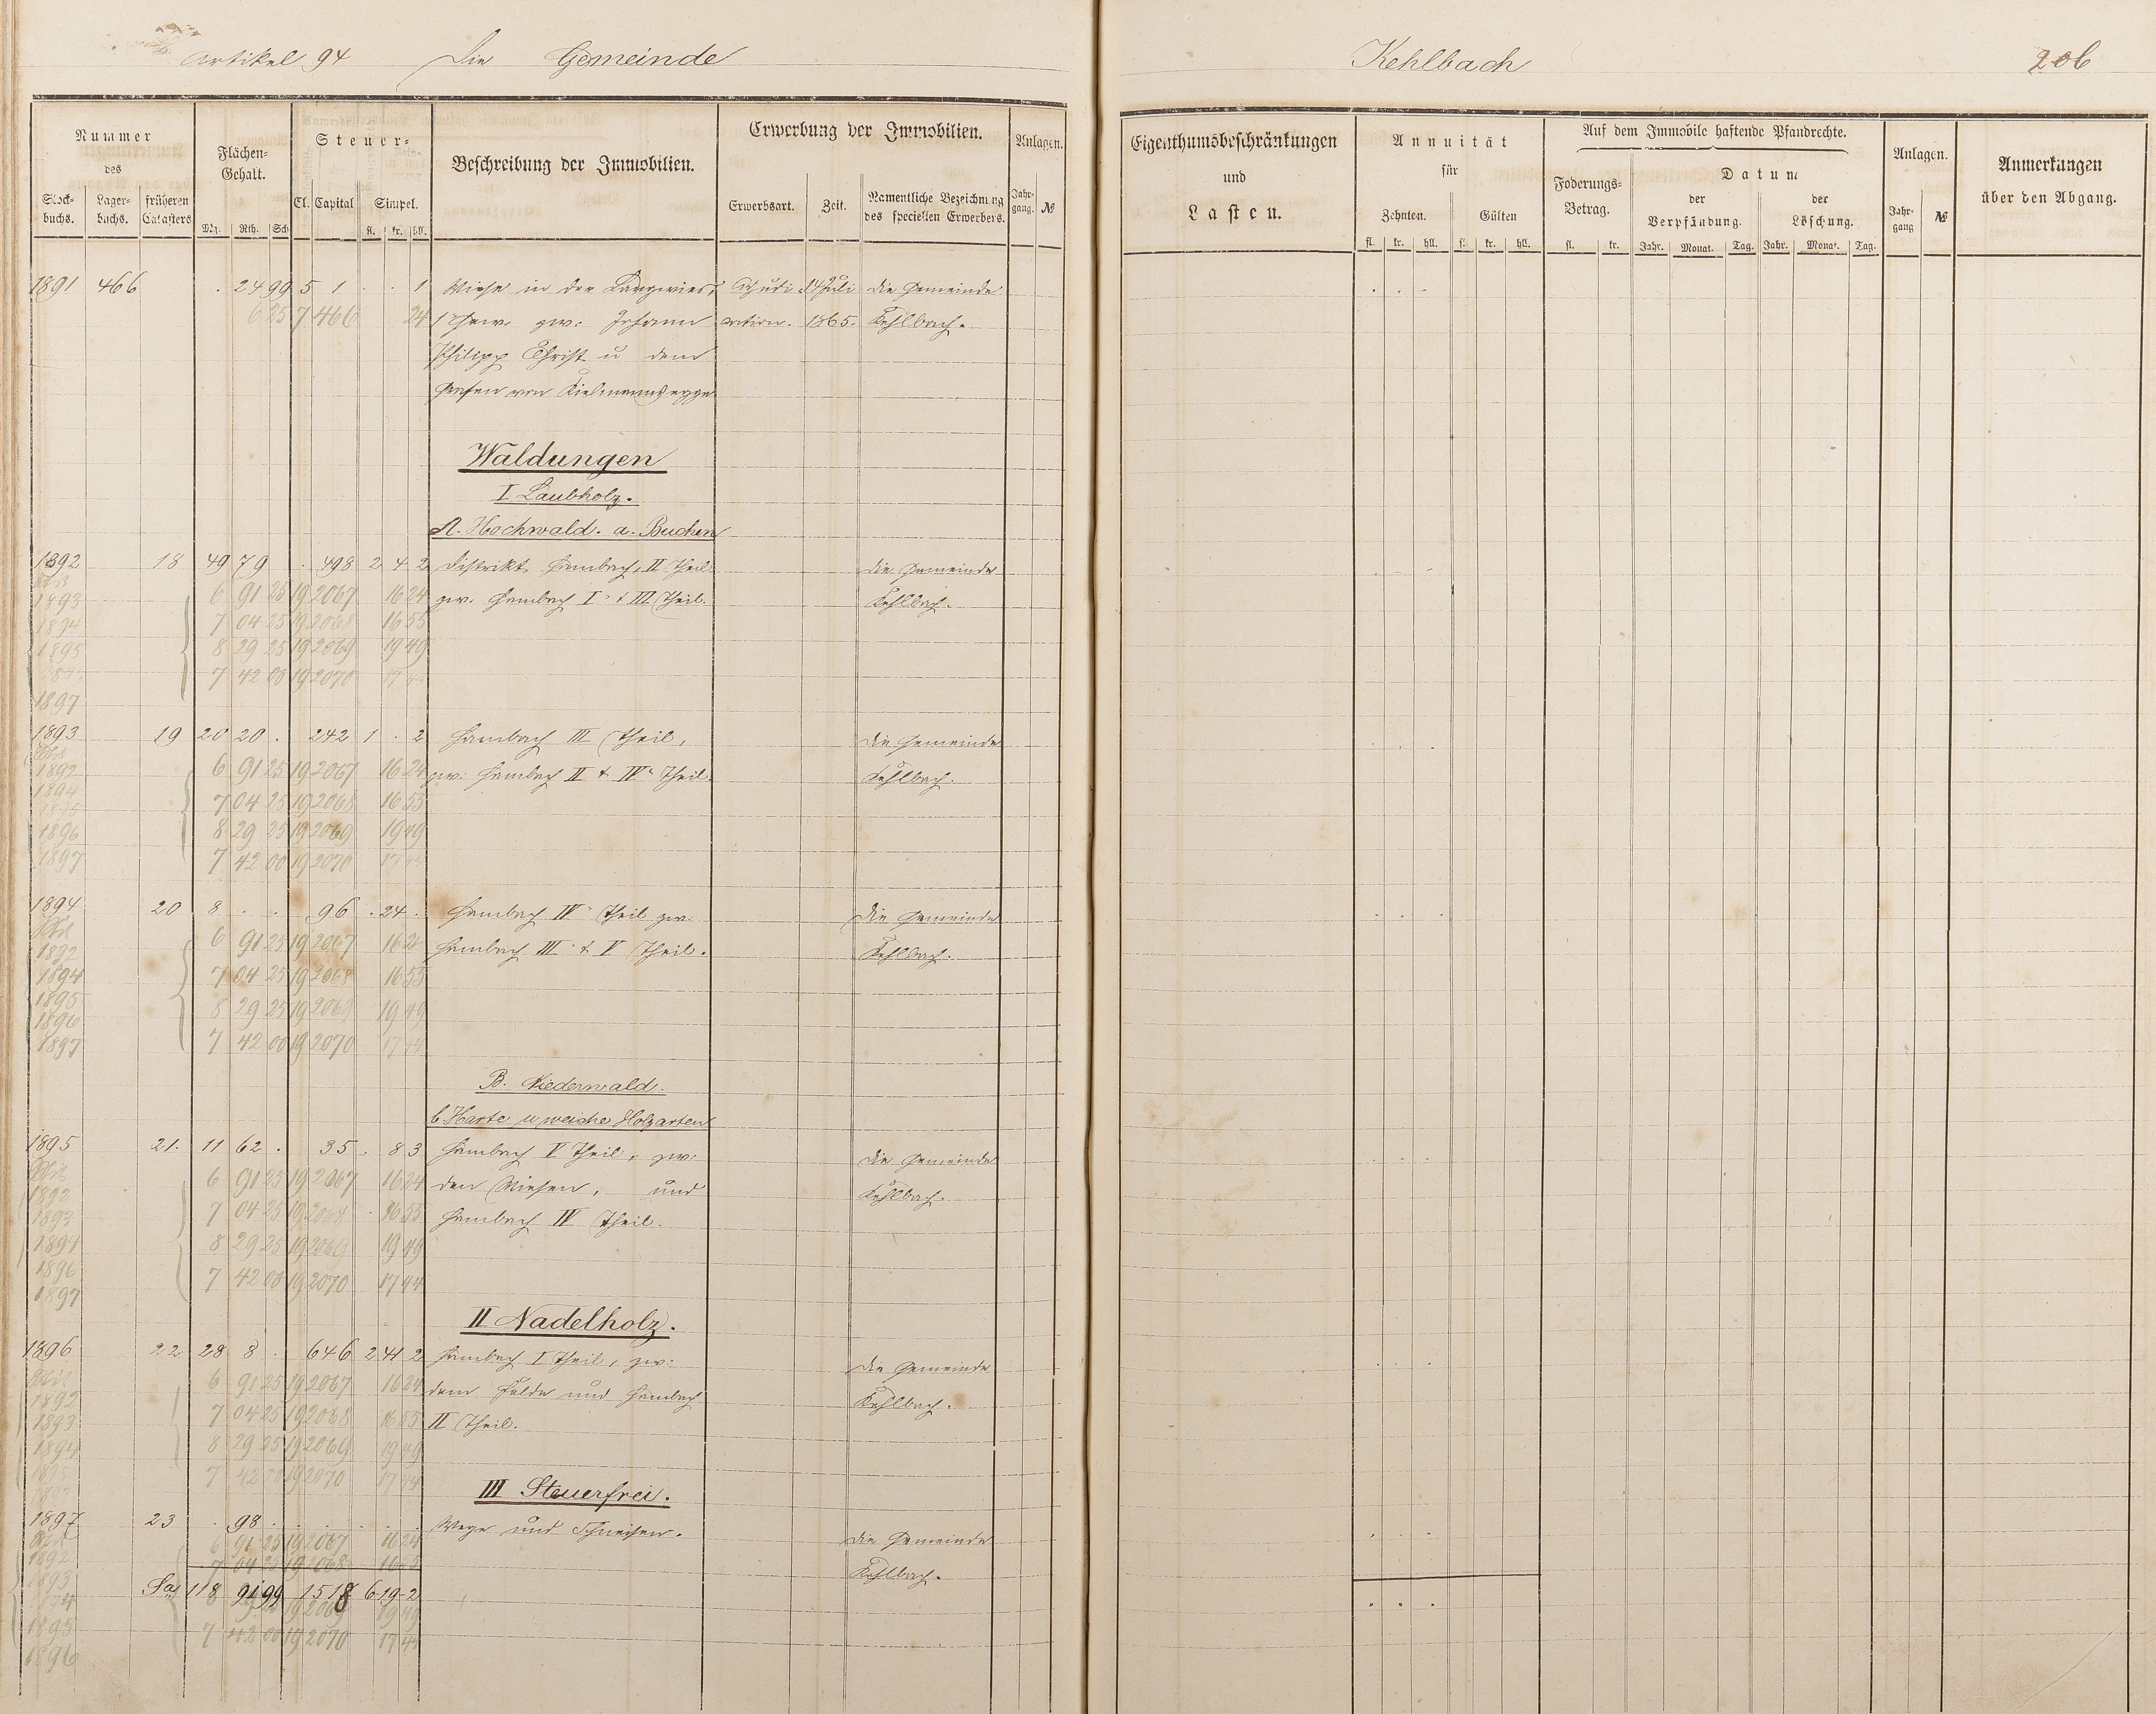 Artikel 94 Die Gemeinde Kehlbach 206
Nummer
des
Stock-buchs. Lager-buchs. früheren Catasters
Flächen-Gehalt.
Mg. Rth. Sch
Steuer-
Cl. Capital Simpel.
fl. kr. hll.
Beschreibung der Immobilien.
Erwerbung der Immobilien.
Erwerbsart. Zeit. Namentliche Bezeichnung des speciellen Erwerbers.
Anlagen.
Jahr-gang. №
Eigenthumsbeschränkungen
und
Lasten.
Annuität
für
Zehnten. Gülten
fl. kr. hll. fl. kr. hll.
Auf dem Immobile haftende Pfandrechte.
Foderungs-Betrag.
fl. kr.
Datum
der Verpfändung. der Löschung.
Jahr. Monat. Tag. Jahr. Monat. Tag.
Anlagen.
Jahr-gang №
Anmerkungen
über den Abgang.
1891 466 . 24 99 5 1 . . 1 Wiese in der Langwies, Adjudi- 14 Juli die Gemeinde
6 25 7 466 24 1r Gew. zw. Johann cation. 1865. Kehlbach.
Philipp Christ u dem
Grafen von Kielmannsegge
Waldungen
I Laubholz.
A. Hochwald. a. Buchen
1892 18 49 79 . 498 2 4 2 Distrikt Hambach, II Theil. die Gemeinde
1893 6 91 25 19 2067 16 24 zw. Hambach I. & III Theil. Kehlbach.
1894 7 04 25 19 2068 16 55
1895 8 29 25 19 2069 19 49
7 42 00 19 2070 17 44
1897
1893 19 20 20 . 242 1 . 2 Hambach III Theil, die Gemeinde
1892 6 91 25 19 2067 16 24 zw. Hambach II & IVr Theil. Kehlbach.
1894
1895 7 04 25 19 2068 16 55
1896 8 29 25 19 2069 19 49
1897 7 42 00 19 2070 17 44
1894 20 8 . . 96 . 24 . Hambach IVr Theil zw. die Gemeinde
1892 6 91 25 19 2067 16 24 Hambach III. & V Theil. Kehlbach.
1894 7 04 25 19 2068 16 55
1895 8 29 25 19 2069 19 49
1896
1897 7 42 00 19 2070 17 44
B. Niederwald.
b Harte u weiche Holzarten
1895 21. 11 62 . 35 . 8 3 Hambach V Theil, zw. die Gemeinde
1892 6 91 25 19 2067 16 24 den Wiesen, und Kehlbach.
1893 7 04 25 19 2068 16 55 Hambach IV Theil.
1894 8 29 25 19 2069 19 49
1896 7 42 00 19 2070 17 44
1897
II Nadelholz.
1896 22 28 8 . 646 2 41 2 Hambach I Theil, zw: die Gemeinde
1892 6 91 25 19 2067 16 24 dem Felde und Hambach Kehlbach.
1893 7 04 25 19 2068 16 55 II Theil.
1894 8 29 25 19 2069 19 49
1895 7 42 00 19 2070 17 44
III Steuerfrei.
1897 23 . 98 . . . . . . Wege und Schneisen. die Gemeinde
1892 6 91 25 19 2067 16 24 Kehlbach.
1893 7 04 25 19 2068 16 55
Sa. 118 91 99 1518 6 19 2
1894 8 29 25 19 2069 19 49
1895 7 42 00 19 2070 17 44
1896